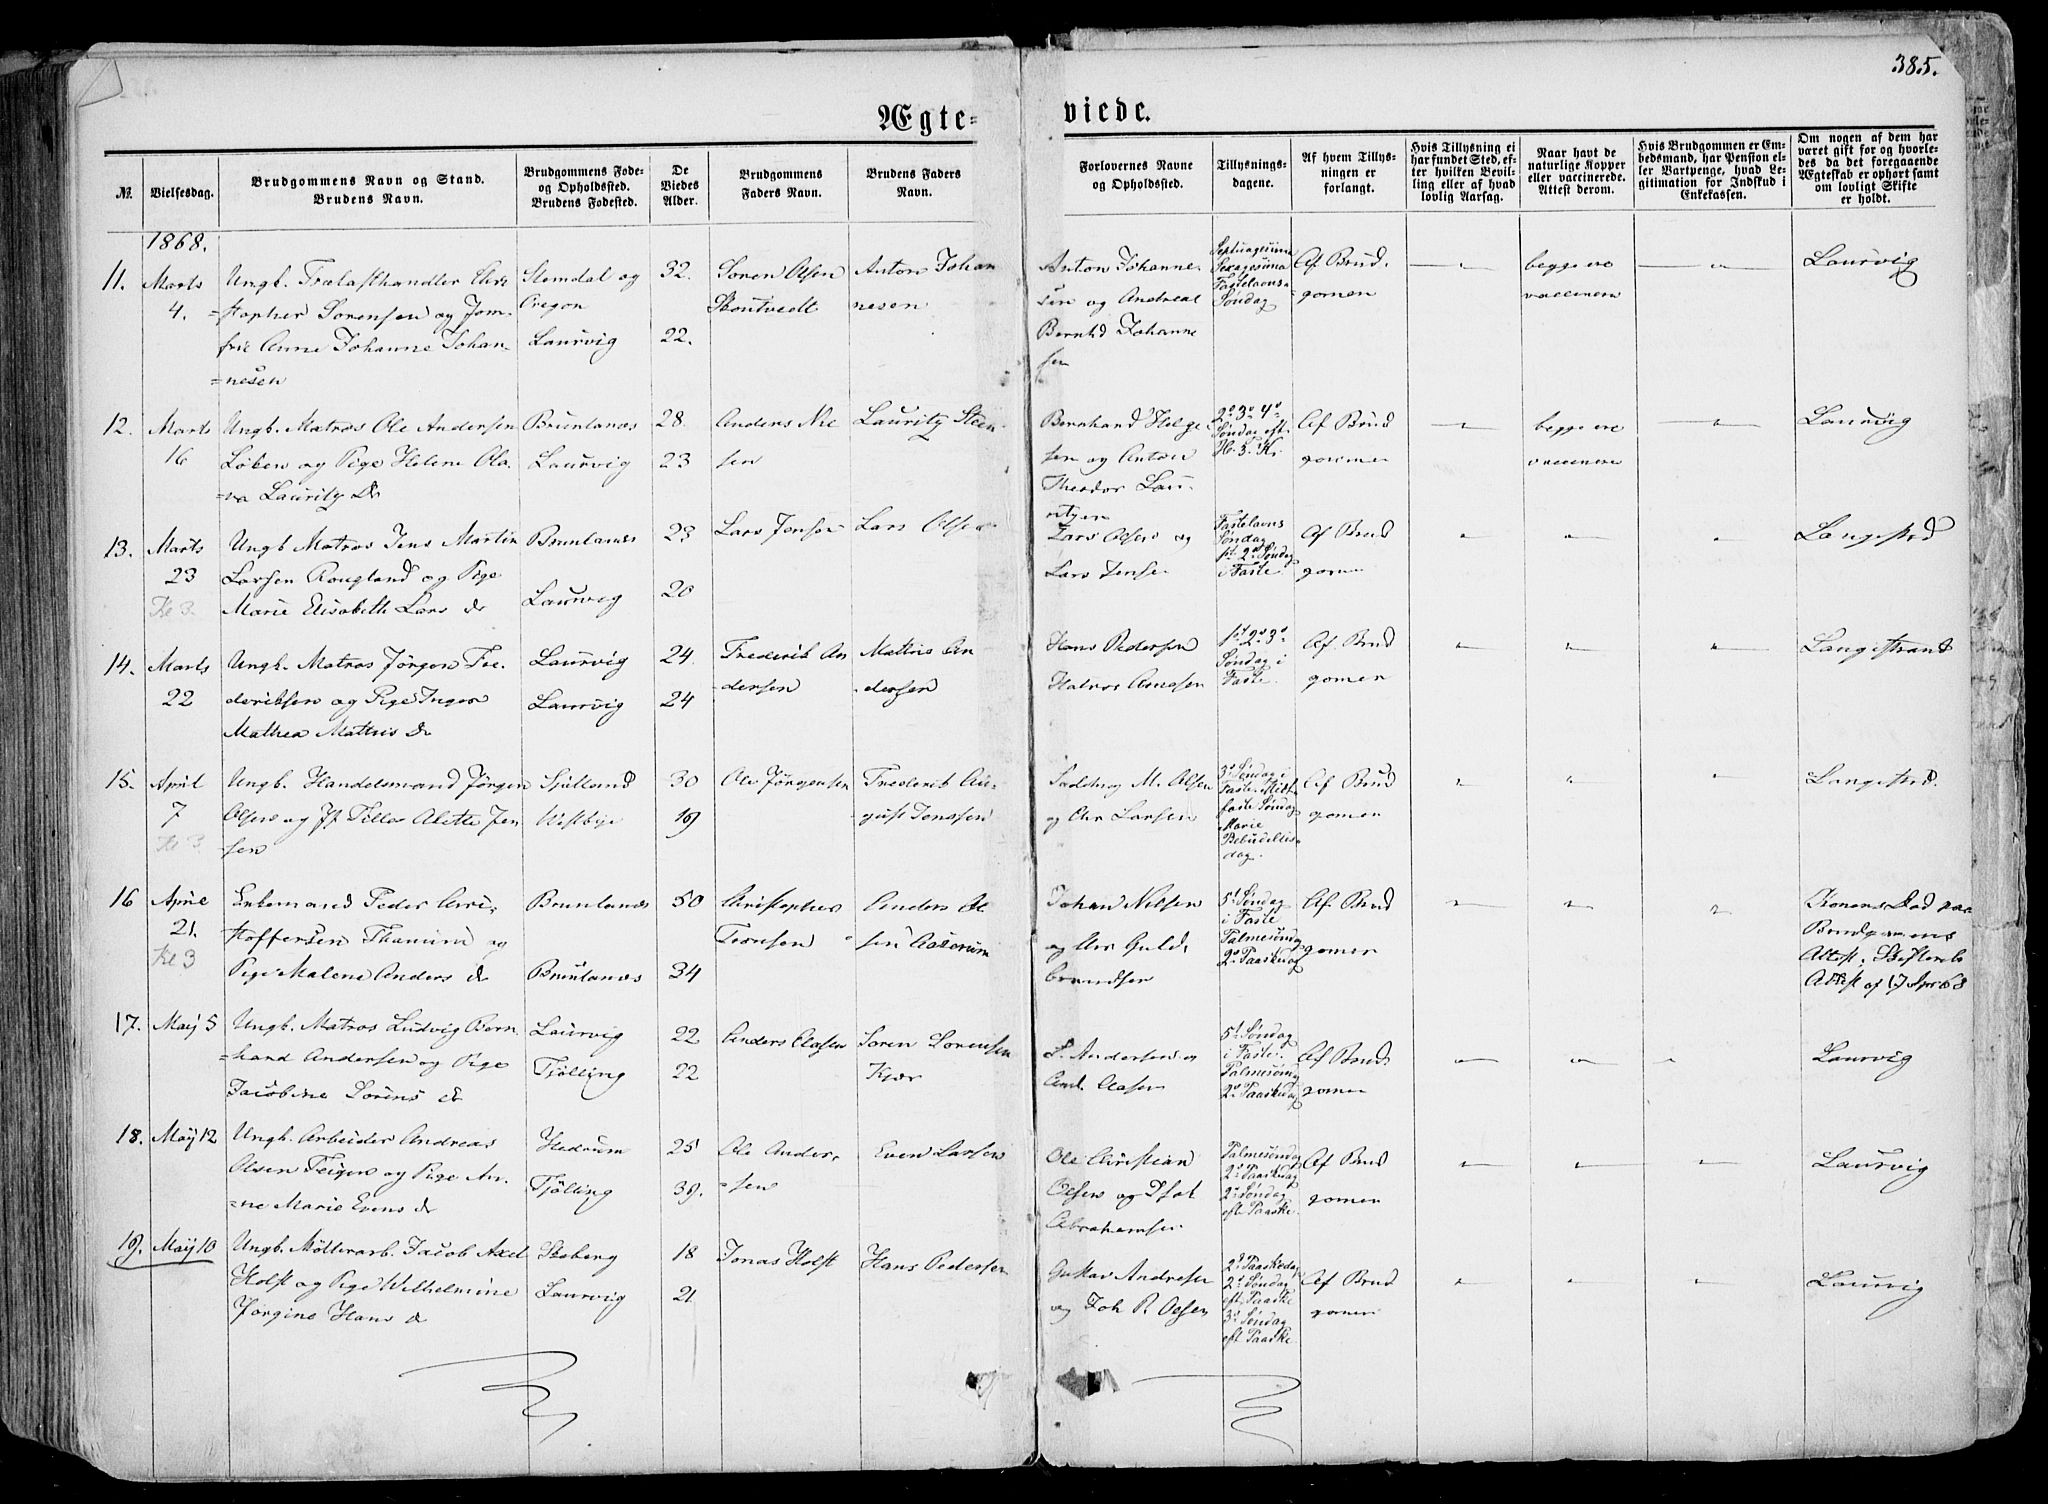 385.
Ægte-
viede.
№.
Vielsesdag.
Brudgommens Navn og Stand.
Brudens Navn.
Brudgommens Føde-
og Opholdssted.
Brudens Fødested.
De
Viedes
Alder.
Brudgommens
Faders Navn.
Brudens Faders
Navn.
Forlovernes Navne
og Opholdssted.
Tillysnings-
dagene.
Af hvem Tillys-
ningen er
forlangt.
Hvis Tillysning ei
har fundet Sted, ef-
ter hvilken Bevil-
ling eller af hvad
lovlig Aarsag.
Naar havt de
naturlige Kopper
eller vaccinerede.
Attest derom.
Hvis Brudgommen er Em-
bedsmand, har Pension el-
ler Vartpenge, hvad Le-
gitimation for Indskud i
Enkekassen.
Om nogen af dem har
været gift før og hvorle-
des da det foregaaende
Ægteskab er ophørt samt
om lovligt Skifte
er holdt.
1868.
11. Marts 4.
Ungk. Trælasthandler Chri
=stopher Sørensen og Jom-
frue Anne Johanne Johan-
=nesen
Slemdal og
Oregon
Laurvig
32.
22.
Søren Olsen
Skontvedt
Anton Johan
nesen
Anton Johanne-
sen og Andreas
Bernhd Johanne
sen
Septuagesima
Sexagesima
Fastelavns-
Søndag
Af Brud-
=gomen
begge ere
vaccinere
Laurvig
12. Marts 16
Ungk. Matros Ole Andersen
Løben og Pige Helene Ola-
=va Lauritz Dr
Brunlanæs
Laurvig
28.
23
Anders Nie
sen
Lauritz Steen
Bernhard Helge
sen og Anton
Theodor Lau-
ritzen
2den 3de 4de
Søndag eft
H. 3. K.
Af Brud
gommen
begge ere
vaccinere
Laurvig
13. Marts 23
Kl 3.
Ungk Matros Jens Martin
Larsen Rougland og Pige
Marie Elisabeth Lars dr
Brunlanæs
Laurvig
23
20
Lars Jensen
Lars Olsen
Lars Olsen og
Lars Jensen
Fastelavns
Søndag
1st 2d Søndag
i Faste.
Af Brud
gomen
Langestrd
14. Marts 22
Ungk. Matros Jørgen Fre-
deriksen og Pige Inger
Mathea Mathis dr
Laurvig
Laurvig
24.
24
Frederik An
-dersen
Mathis An
-dersen
Hans Pedersen
1st 2d 3d
Søndag i
Faste.
Af Brud
gomen
Langestrand
15. April 7
Kl 3.
Ungk. Handelsmand Jørgen
Olsen og Alette Jen
sen
Sjælland
Westbye
30
19
Ole Jørgensen
Frederik Au-
-gust Jensen
M. Olsen
og Chr Larsen
3d Søndag i
Faste. Midt
faste Søndag
Marie
Bebudelses
dag.
Af Brud
gomen
Langestrd.
16 April 21.
Kl 3
Enkemand Peder Chri-
stoffersen Thanum og
Pige Malene Anders dr
Brunlanæs
Brunlanæs
50
34
Christopher
Anders Ol
sen
Johan Nilsen
og Chr Guld-
brandsen
5t Søndag
i Faste
Palmesøndag
2d Paaskedag
Af Brud
gomen
Konens Død paa
Brudgomens
Attest. Skifterets
Attest af 17 Apr 68
17. Maj 5
Ungk. Matros Ludvig Bern
=hard Andersen og Pige
Jacobine Sørens dr
Laurvig
Tjølling
22
22
Anders Olasen
Søren Sørensen
Kjær
L. Andersen og
And. Olasen
5t Søndag
i Faste.
Palmesøndag
2d Paaskedag
Af Brud
gomen
Laurvig
18. Maj 12
Ungk. Arbeider Andreas
Olsen Feigen og Pige An-
=ne Marie Evens dr
Hedrum
Tjølling
25
39.
Ole Ander-
=sen
Even Larsen
Ole Christian
Olsen og
Abrahamsen
Palmesøndag
2d Paaskedag
2d Søndag
eft Paaske.
Af Brud
gomen
Laurvig
19. Maj 10
Ungk. Møllerarb. Jacob Axel
Holst og Pige Wilhelmine
Jørgine Hans dr
Skeberg
Laurvig
18
21
Jonas Holst
Hans Pedersen
Gustav Andresen
og Joh R. Olsen
2d Paaskedag
2d Søndag
eft. Paaske
3d Søndag
eft Paaske
Af Brud
gomen
Laurvig